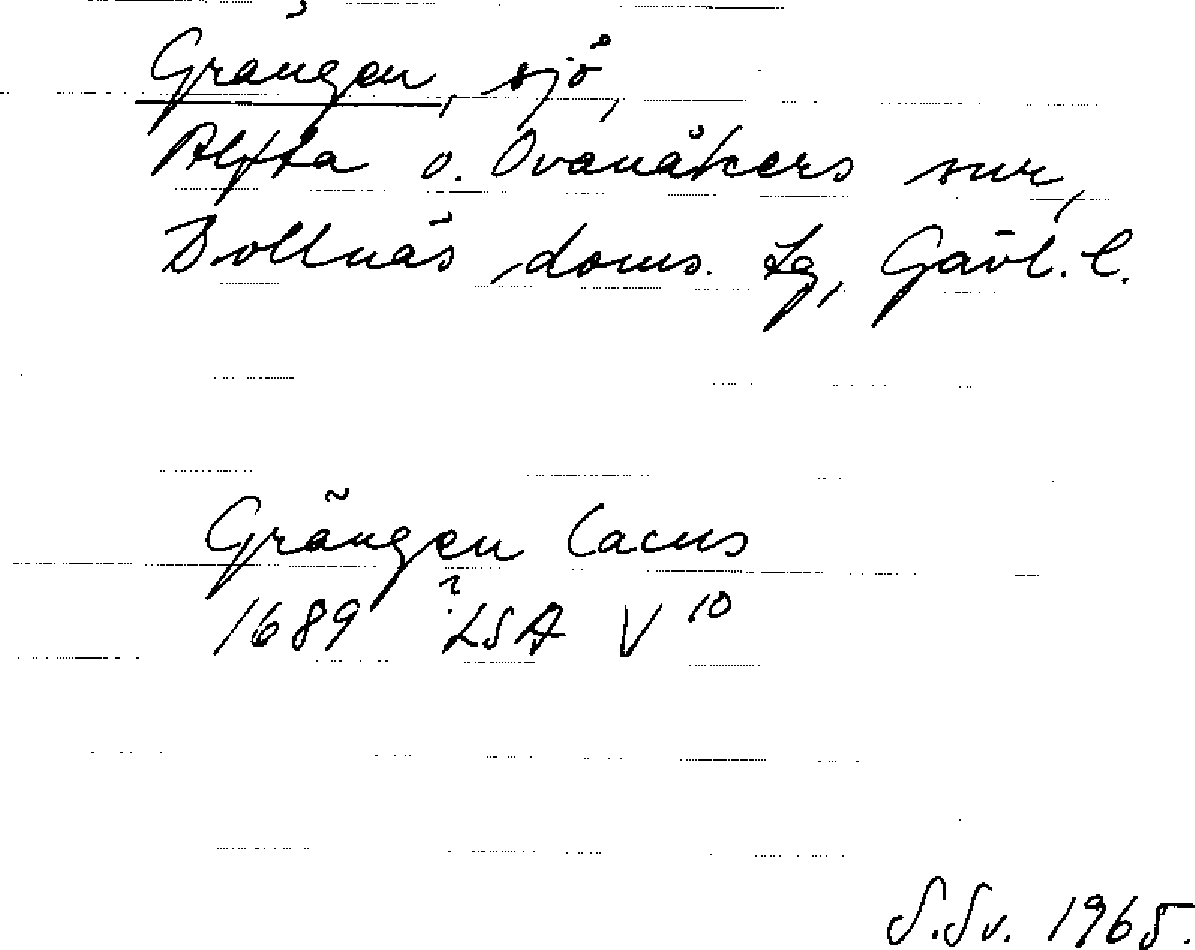 Grängen, sjö,
Alfta o. Ovanåkers snr,
Bollnäs doms. lg, Gävl. l.
Grängen Lacus
1689 LSA V 10
S.Sv. 1965.